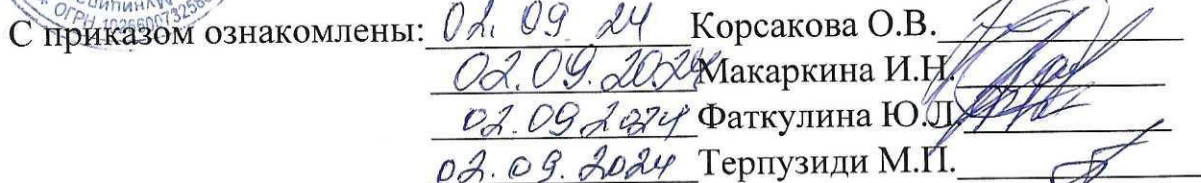 ОГРН 1026600732586
С приказом ознакомлены: 02. 09. 24 Корсакова О.В.
02.09.2024 Макаркина И.Н.
02.09.2024 Фаткулина Ю.Л.
02.09.2024 Терпузиди М.П.